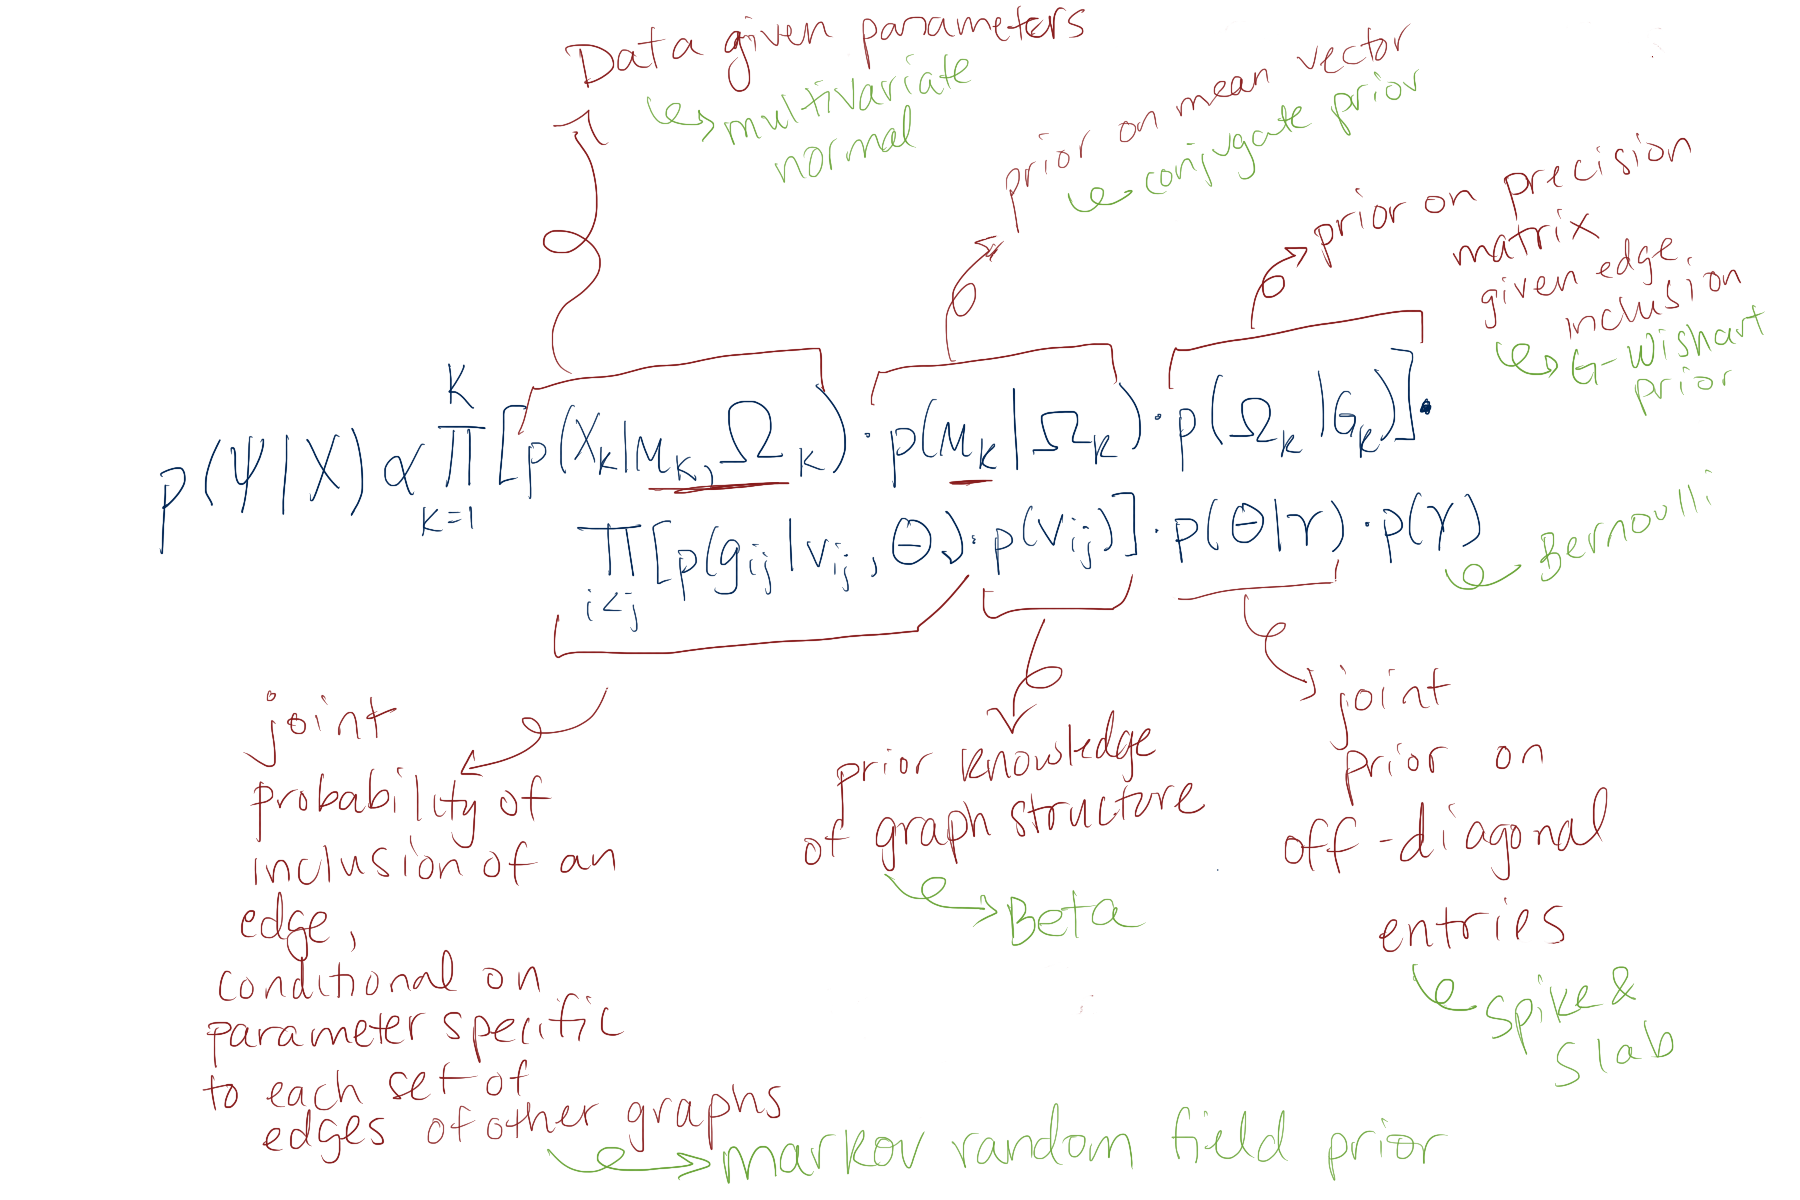 Data given parameters
multivariate
normal
prior on mean vector
conjugate prior
prior on precision
matrix
given edge
inclusion
G-Wishart
prior
p(Ψ|X) ∝ ∏_{K=1}^{K} [p(X_K|μ_K, Ω_K) · p(μ_K|Ω_K) · p(Ω_K|G_K)] ·
∏_{i<j} [p(g_ij|ν_ij, Θ) · p(ν_ij)] · p(Θ|γ) · p(γ)
Bernoulli
joint
probability of
inclusion of an
edge,
conditional on
parameter specific
to each set of
edges of other graphs
markov random field prior
prior knowledge
of graph structure
Beta
joint
prior on
off-diagonal
entries
Spike &
Slab